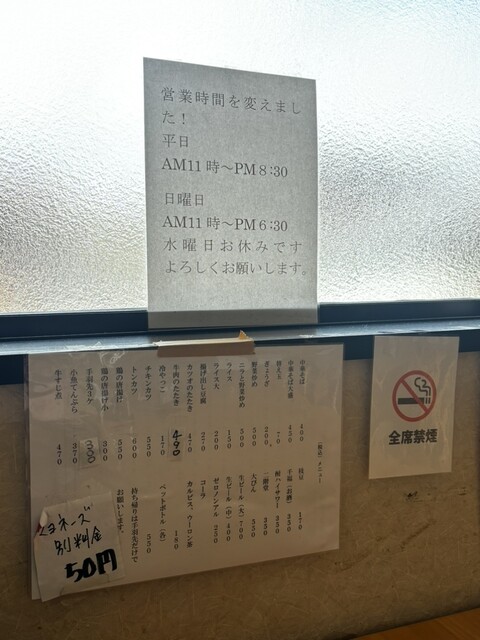 営業時間を変えまし
た！
平日
AM11時～PM8:30
日曜日
AM11時～PM6:30
水曜日お休みです
よろしくお願いします。
全席禁煙
(税込) メニュー
中華そば 400
中華そば大盛 450
替え玉 70
ぎょうざ 200
野菜炒め 500
ニラと野菜炒め 500
ライス 150
ライス大 200
揚げ出し豆腐 270
カツオのたたき 470
牛肉のたたき 490
冷やっこ 170
チキンカツ 550
トンカツ 600
鶏の唐揚げ 550
鶏の唐揚げ小 300
手羽先3ケ
小魚てんぷら 370
牛すじ煮 470
枝豆 170
二階堂 350
大びん 550
生ビール（大）700
生ビール（中）400
ゼロノンアル 250
コーラ
カルピス、ウーロン茶 180
ペットボトル（各） 550
持ち帰りは手羽先だけで
お願いします。
マヨネーズ
別料金
50円